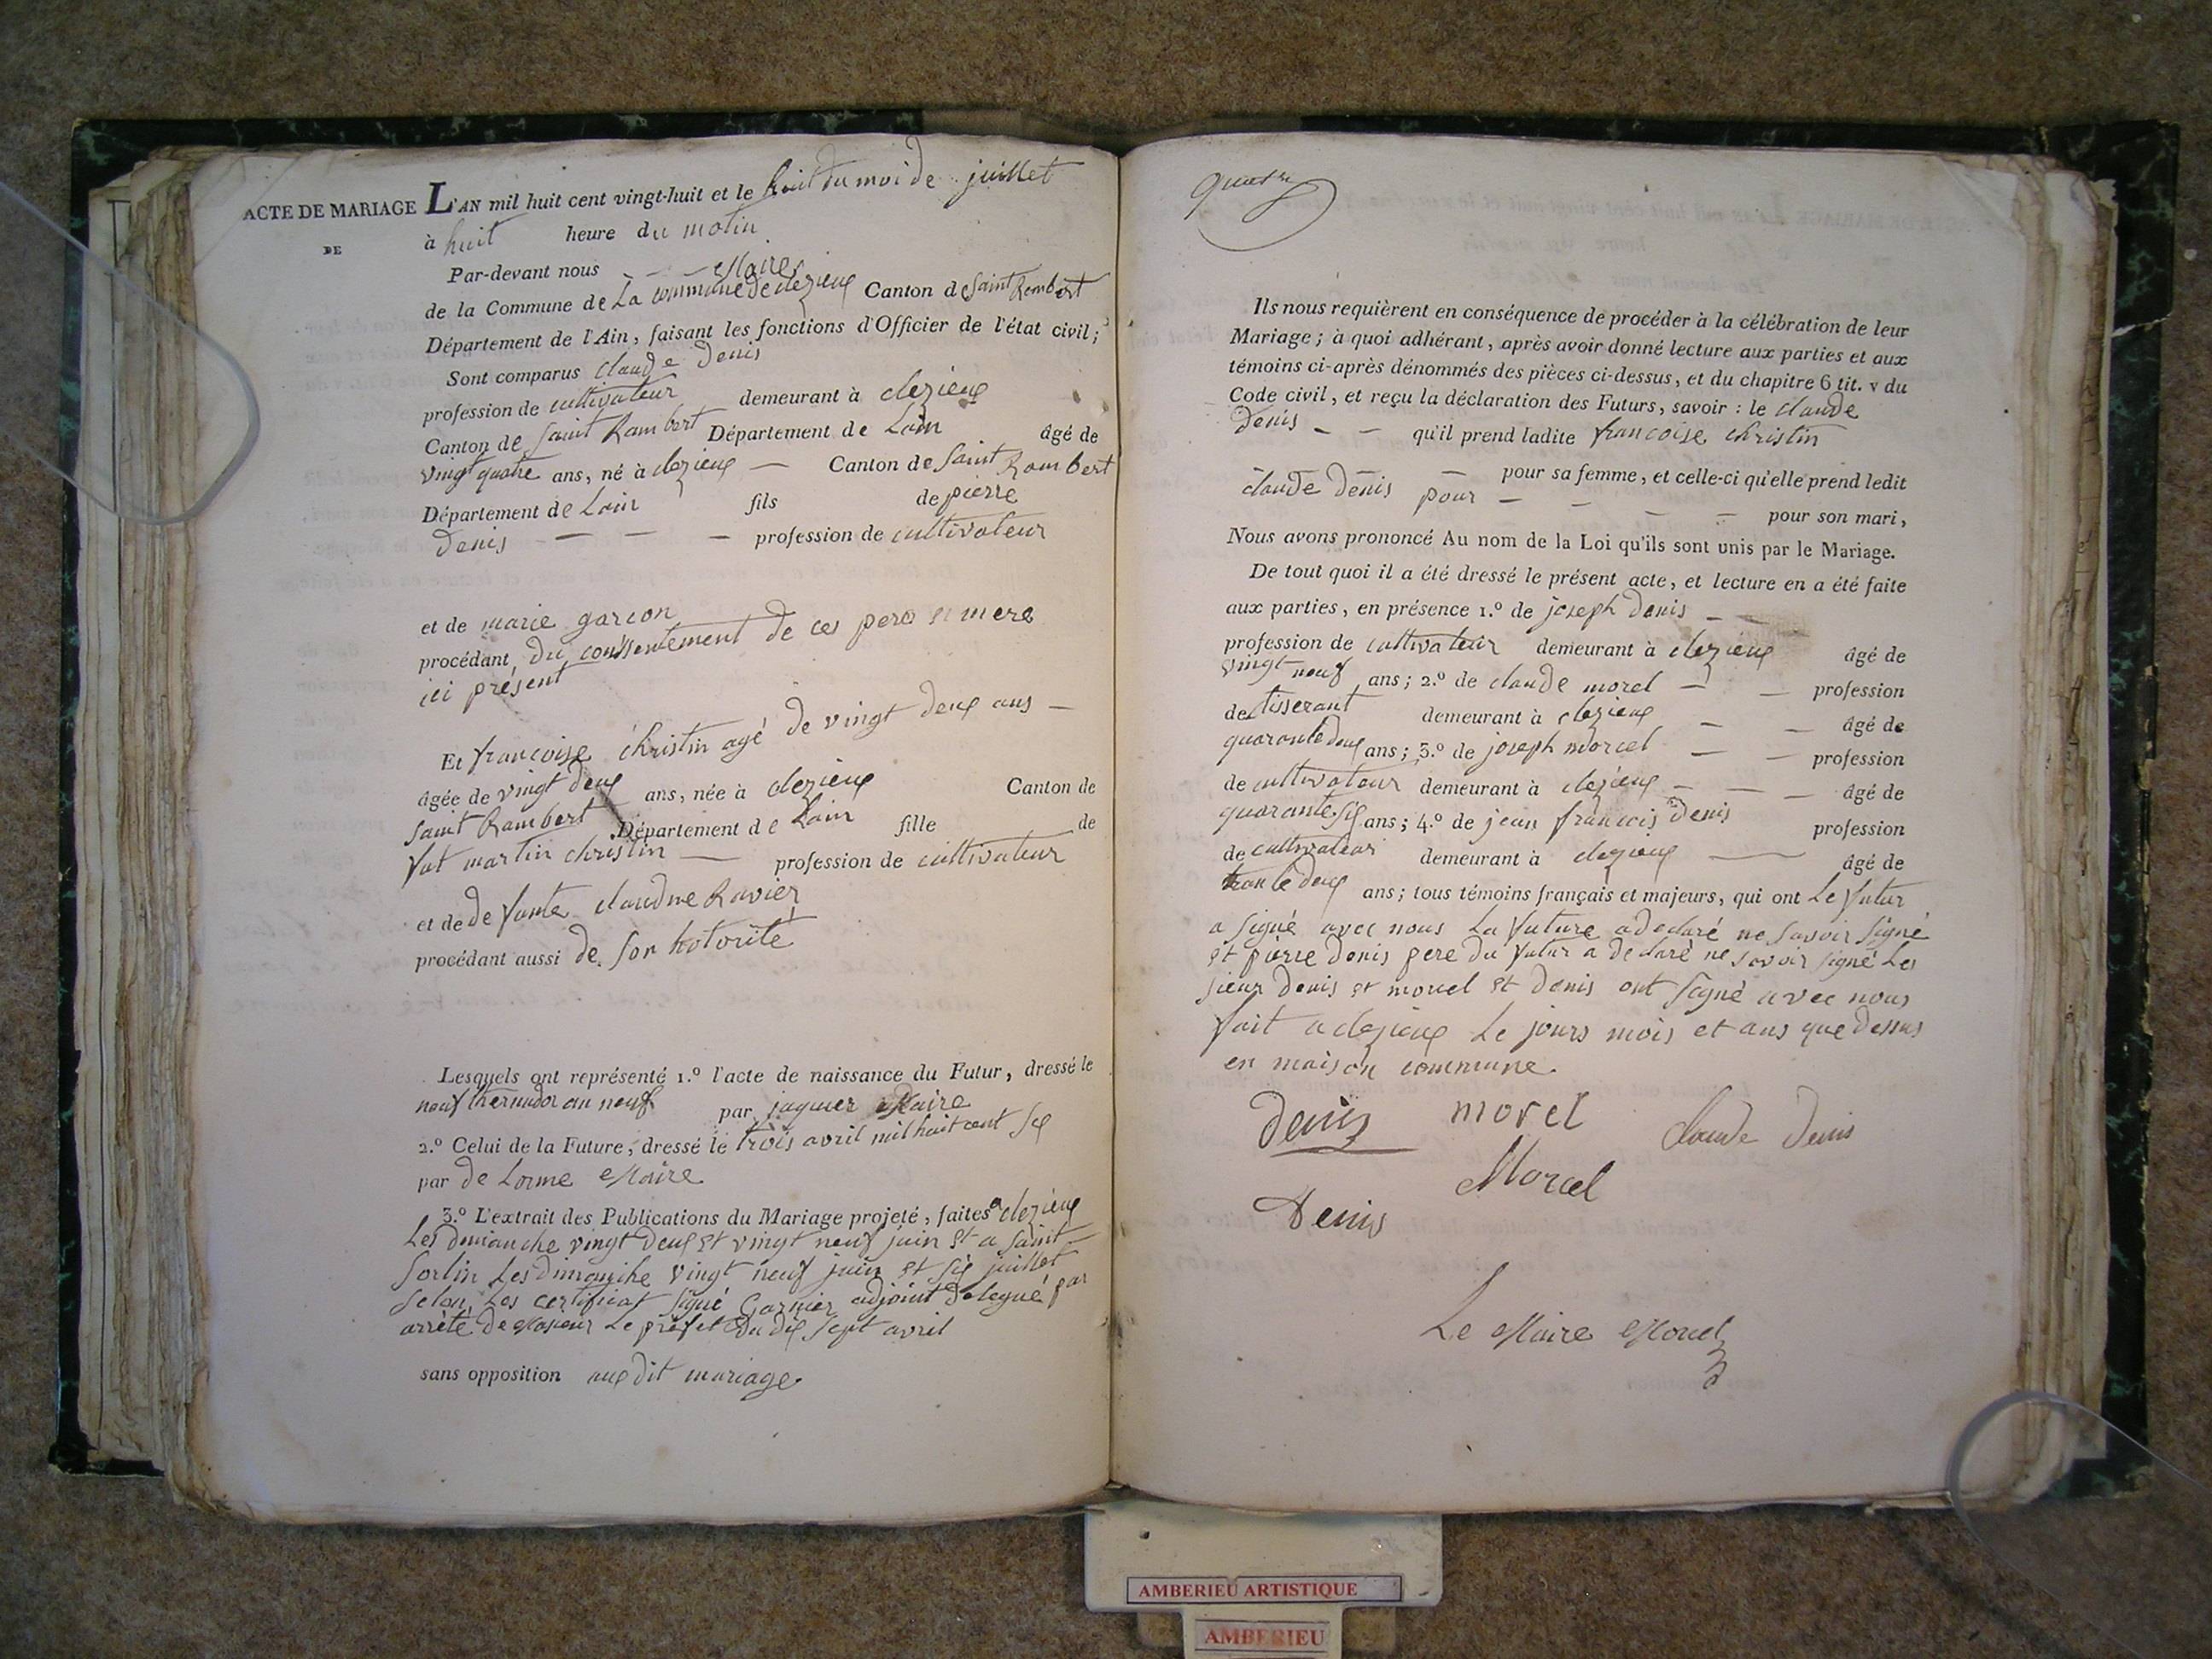 ACTE DE MARIAGE
DE
L'AN mil huit cent vingt-huit et le huit du moi de juillet
à huit heure du matin
Par-devant nous — — Maire
de la Commune de La commune de clezieux Canton de Saint Rambert
Département de l'Ain, faisant les fonctions d'Officier de l'état civil;
Sont comparus claude denis
profession de cultivateur demeurant à clezieux
Canton de Saint Rambert Département de Lain âgé de
vingt quatre ans, né à clezieux — Canton de Saint Rambert
Département de Lain fils de pierre
denis — — — profession de cultivateur
et de marie garcon
procédant du consentement de ces pere et mere
ici présent
Et francoise christin agé de vingt deux ans —
âgée de vingt deux ans, née à clezieux Canton de
saint Rambert Département de Lain fille de
fut martin christin — profession de cultivateur
et de defunte claudine Ravier
procédant aussi de son hotorité
Lesquels ont représenté 1.º l'acte de naissance du Futur, dressé le
neuf thermidor an neuf par jaquier Maire
2.º Celui de la Future, dressé le trois avril mil huit cent six
par de Lorme Maire
3.º L'extrait des Publications du Mariage projeté, faites a clezieux
Les dimanche vingt deux et vingt neuf juin et a saint
Sorlin Les dimanche vingt neuf juin et six juillet
selon Les certificat signé Garnier adjoint delegué par
arrêté de Mosieur Le préfet du dix sept avril
sans opposition aux dit mariage
quatre
Ils nous requièrent en conséquence de procéder à la célébration de leur
Mariage; à quoi adhérant, après avoir donné lecture aux parties et aux
témoins ci-après dénommés des pièces ci-dessus, et du chapitre 6 tit. v du
Code civil, et reçu la déclaration des Futurs, savoir : le claude
denis — — qu'il prend ladite francoise christin
— — — pour sa femme, et celle-ci qu'elle prend ledit
claude denis pour — — — — pour son mari,
Nous avons prononcé Au nom de la Loi qu'ils sont unis par le Mariage.
De tout quoi il a été dressé le présent acte, et lecture en a été faite
aux parties, en présence 1.º de joseph denis — —
profession de cultivateur demeurant à clezieux âgé de
vingt neuf ans; 2.º de claude morel — — profession
de tisserant demeurant à clezieux — — âgé de
quarante deux ans; 3.º de joseph morcel — — profession
de cultivateur demeurant à clezieux — — — âgé de
quarante six ans; 4.º de jean francois denis profession
de cultivateur demeurant à clezieux — âgé de
trante deux ans; tous témoins français et majeurs, qui ont Le futur
a signé avec nous La future a declaré ne savoir signé
et pierre denis pere du futur a declaré ne savoir signé Les
sieur denis et morcel et denis ont signé avec nous
fait a clezieux Le jours mois et ans que dessus
en maison commune.
denis morel claude denis
Morcel
Denis
Le Maire Morcel
AMBERIEU ARTISTIQUE
AMBERIEU